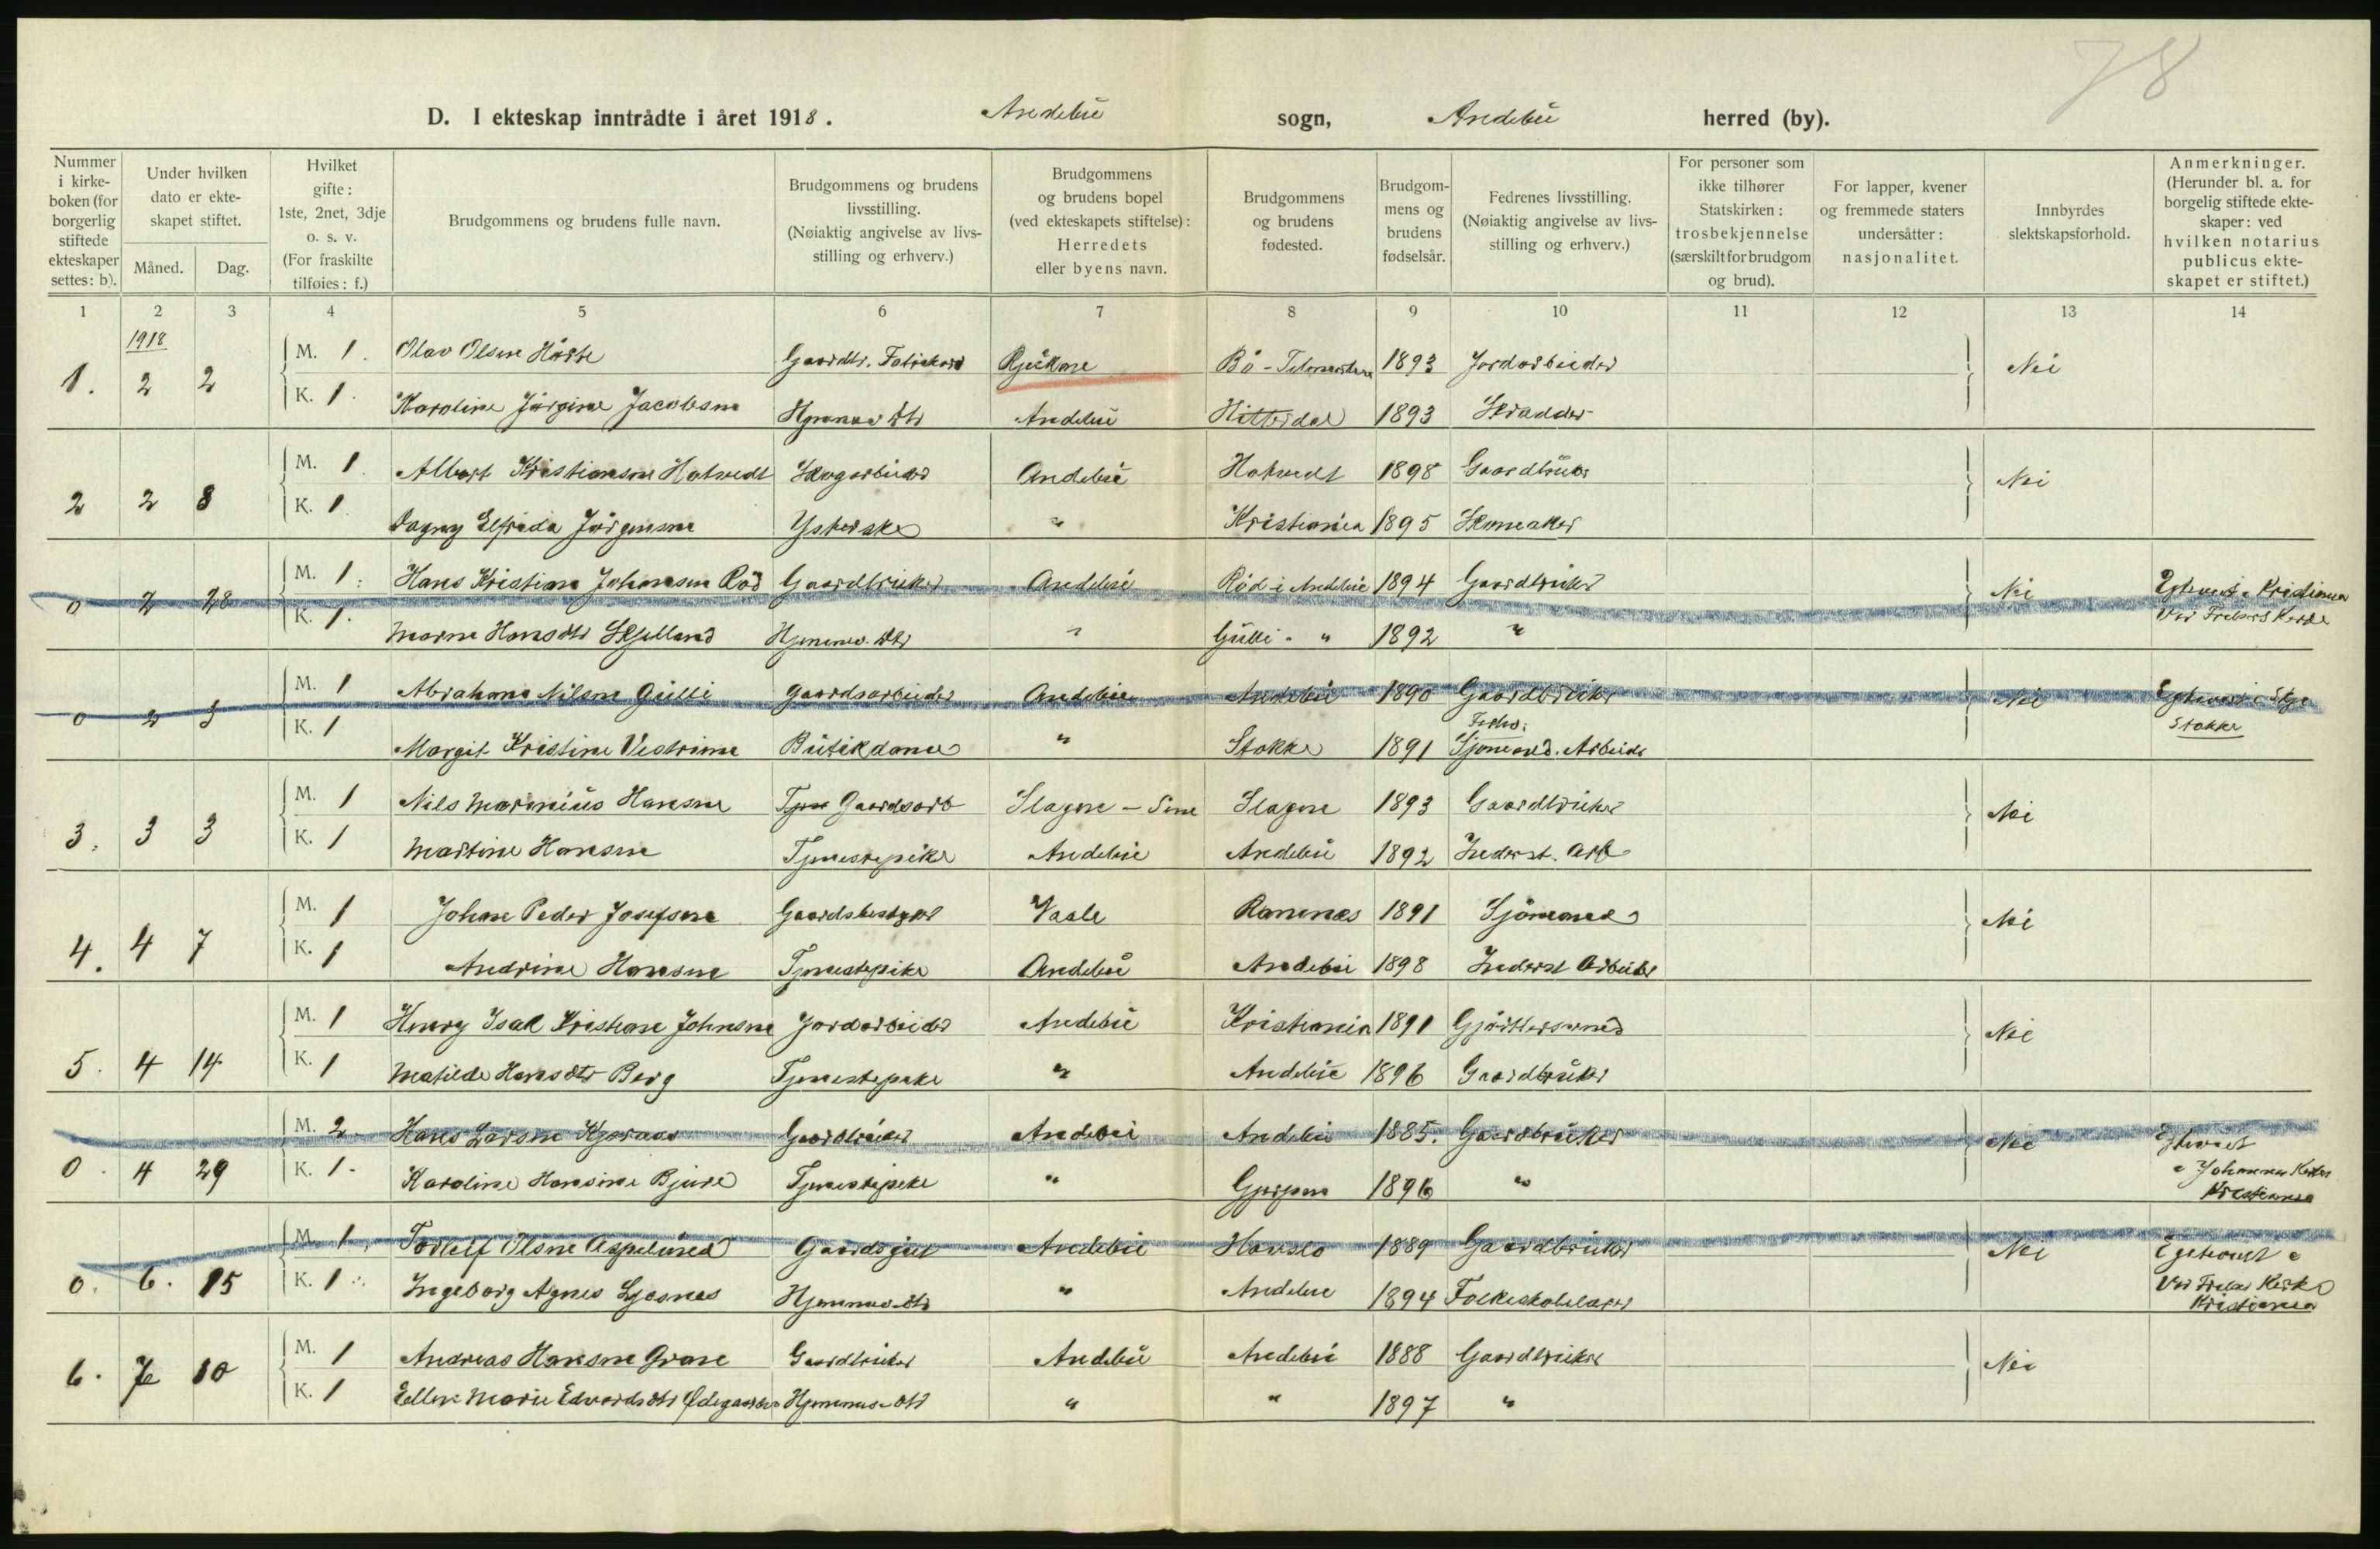 78
D. I ekteskap inntrådte i året 1918. Andebu sogn, Andebu herred (by).
Nummer i kirkeboken (for borgerlig stiftede ekteskaper settes: b).
Under hvilken dato er ekteskapet stiftet.
Måned. Dag.
Hvilket gifte: 1ste, 2net, 3dje o. s. v. (For fraskilte tilføies: f.)
Brudgommens og brudens fulle navn.
Brudgommens og brudens livsstilling. (Nøiaktig angivelse av livsstilling og erhverv.)
Brudgommens og brudens bopel (ved ekteskapets stiftelse): Herredets eller byens navn.
Brudgommens og brudens fødested.
Brudgommens og brudens fødselsår.
Fedrenes livsstilling. (Nøiaktig angivelse av livsstilling og erhverv.)
For personer som ikke tilhører Statskirken: trosbekjennelse (særskilt for brudgom og brud).
For lapper, kvener og fremmede staters undersåtter: nasjonalitet.
Innbyrdes slektskapsforhold.
Anmerkninger. (Herunder bl. a. for borgelig stiftede ekteskaper: ved hvilken notarius publicus ekteskapet er stiftet.)
1 2 3 4 5 6 7 8 9 10 11 12 13 14
1918
1. 2 2 M. 1. Olav Olsen Gaardbr. Rjukan Bö - Telemarken 1893 Jordarbeider Nei
K. 1. Karoline Jörgine Jacobsen Hjemmev. dtr Andebu Hitterdal 1893 Skradder
2 2 8 M. 1. Albert Kristiansen Hotvedt Skogarbeider Andebu Hotvedt 1898 Gaardbruker Nei
K. 1. Dagny Elfrida Jörgensen Ysterske " Kristiania 1895 Skomaker
0 2 28 M. 1. Hans Kristian Johansen Röd Gaardbruker Andebu Röd i Andebu 1894 Gaardbruker Nei Egteviet i Kristiania
K. 1. Maren Hansdtr Skjelland Hjemmev. dtr " Gulli " " 1892 " Vor Frelsers Kirke
0 2 3 M. 1 Abraham Nilsen Gulli Gaardsarbeider Andebu Andebu 1890 Gaardbruker Nei Egteviet i
K. 1 Margit Kristine Vestrum Butikdame " Stokke 1891 Sjömand. Arbeider Stokke
3. 3 3 M. 1 Nils Marinius Hansen Gaardsarb Slagen - Sem Slagen 1893 Gaardbruker Nei
K. 1 Martine Hansen Tjenestepike Andebu Andebu 1892 Inderst. Arb
4. 4 7 M. 1 Johan Peder Josefsen Gaardsbestyrer Vaale Ramnes 1891 Sjömand Nei
K. 1 Andrine Hansen Tjenestepike Andebu Andebu 1898 Inderst Arbeider
5. 4 14 M. 1 Henry Isak Kristian Johnsen Jordarbeider Andebu Kristiania 1891 Gjörtlersvend Nei
K. 1 Matilde Hansdtr Berg Tjenestepike " Andebu 1896 Gaardbruker
0. 4 29 M. 2. Hans Larsen Kjeraas Gaardbruker Andebu Andebu 1885. Gaardbruker Nei Egteviet
K. 1. Karoline Hansine Bjure Tjenestepike " Gjerpen 1896 " i Johannes Kirken
Kristiania
0. 6. 15 M. 1. Torleif Olsen Aspelund Gaardsgut Andebu Hafslo 1889 Gaardbruker Nei Egteviet i
K. 1. Ingeborg Agnes Gjesnes Hjemmev. dtr " Andebu 1894 Folkeskolelærer Vor Frelser Kirke
Kristiania
6. 7 10 M. 1 Andreas Hansen Gran Gaardbruker Andebu Andebu 1888 Gaardbruker Nei
K. 1 Ellen Marie Edvardsdtr Ødegaarden Hjemmev. dtr " " 1897 "